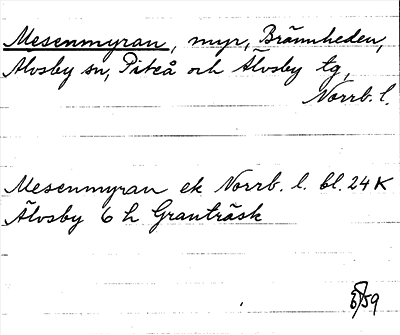 Mesenmyran, myr, Brännheden,
Älvsby sn, Piteå och Älvsby tg,
Norrb. l.
Mesenmyran ek Norrb. l. bl. 24 K
Älvsby 6 h Granträsk
/59